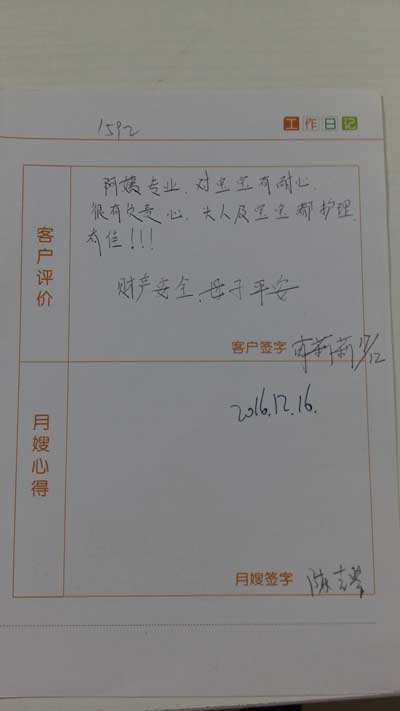 1592
工作日记
客户评价
阿姨专业、对宝宝有耐心、
很有责任心、大人及宝宝都护理
有佳!!!
财产安全、母子平安
客户签字 莉莉 17/12
2016.12.16.
月嫂心得
月嫂签字 陈